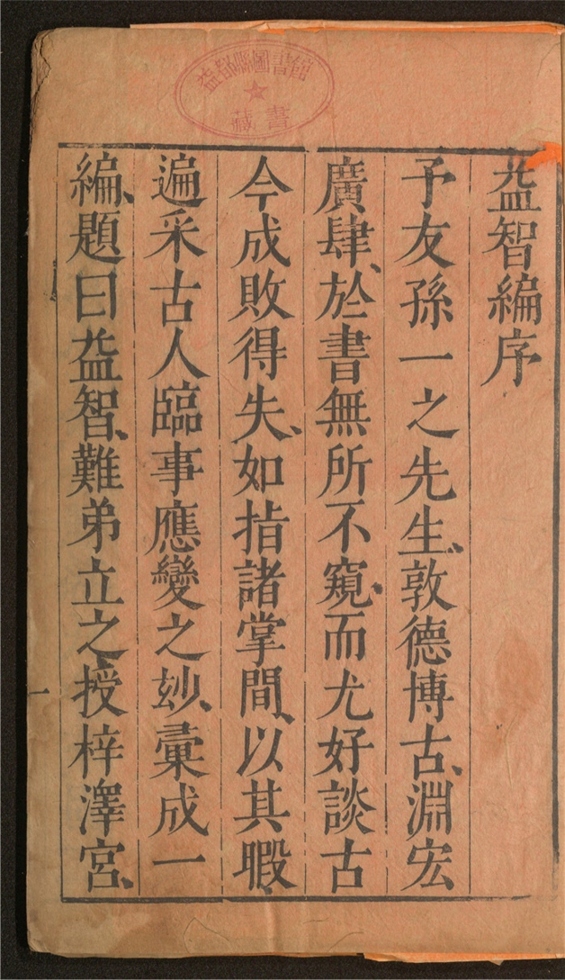 益都縣圖書館
藏書
益智編序
予友孫一之先生、敦德博古、淵宏
廣肆、於書無所不窺、而尤好談古
今成敗得失、如指諸掌間、以其暇、
遍采古人臨事應變之玅、彙成一
編、題曰益智、難弟立之授梓澤宮、
一